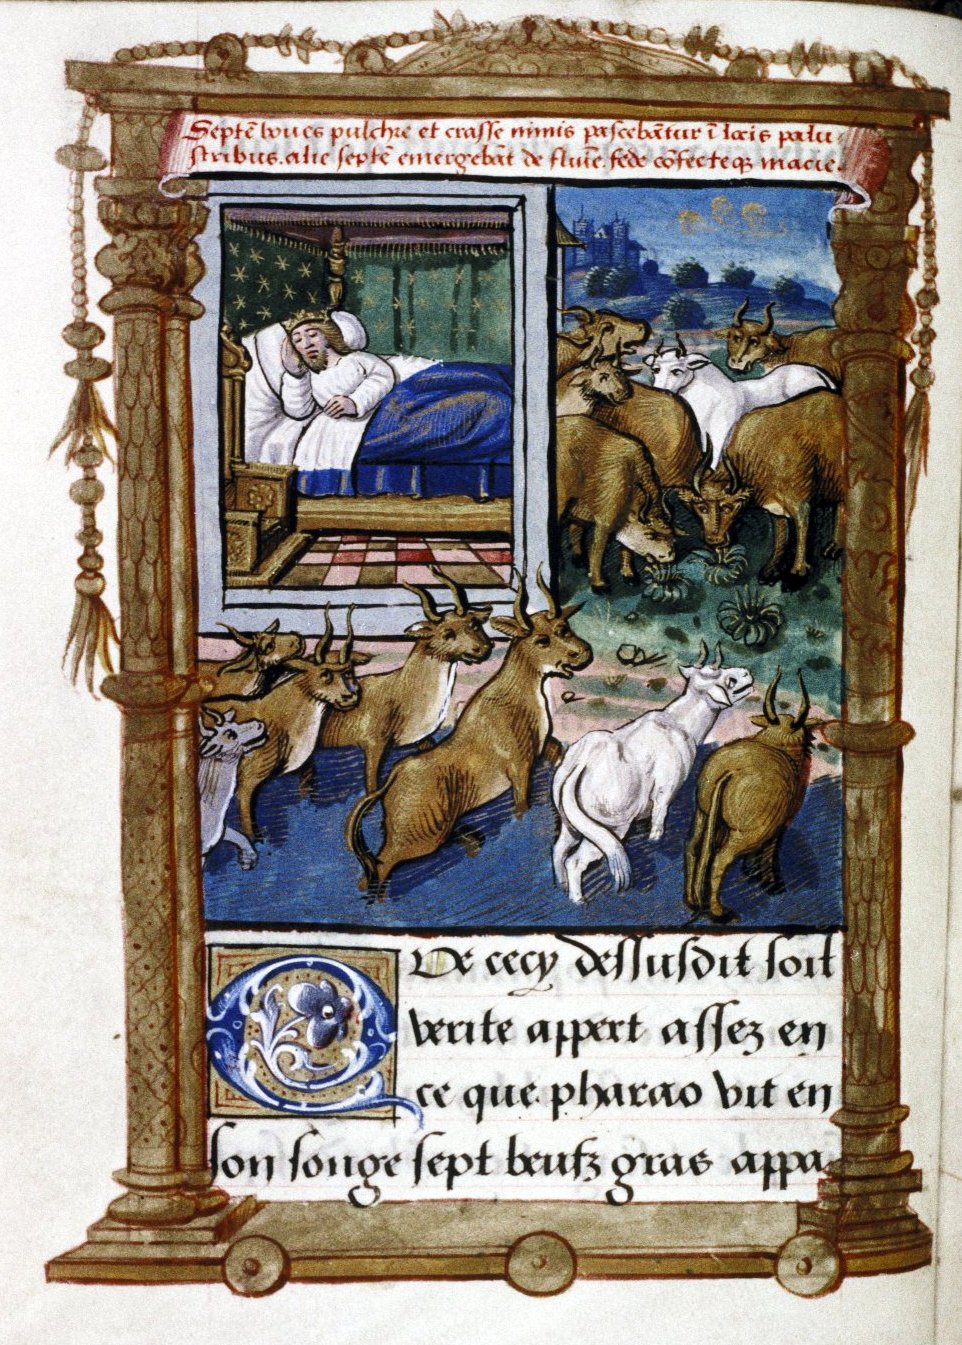 Septẽ boues pulchre et crasse nimis pascebãtur ĩ locis palu
stribus. alie septẽ emergebãt de fluĩe. fede cõfecteq; macie.
Que cecy dessusdit soit
verite appert assez en
ce que pharao vit en
son songe sept beufz gras appa